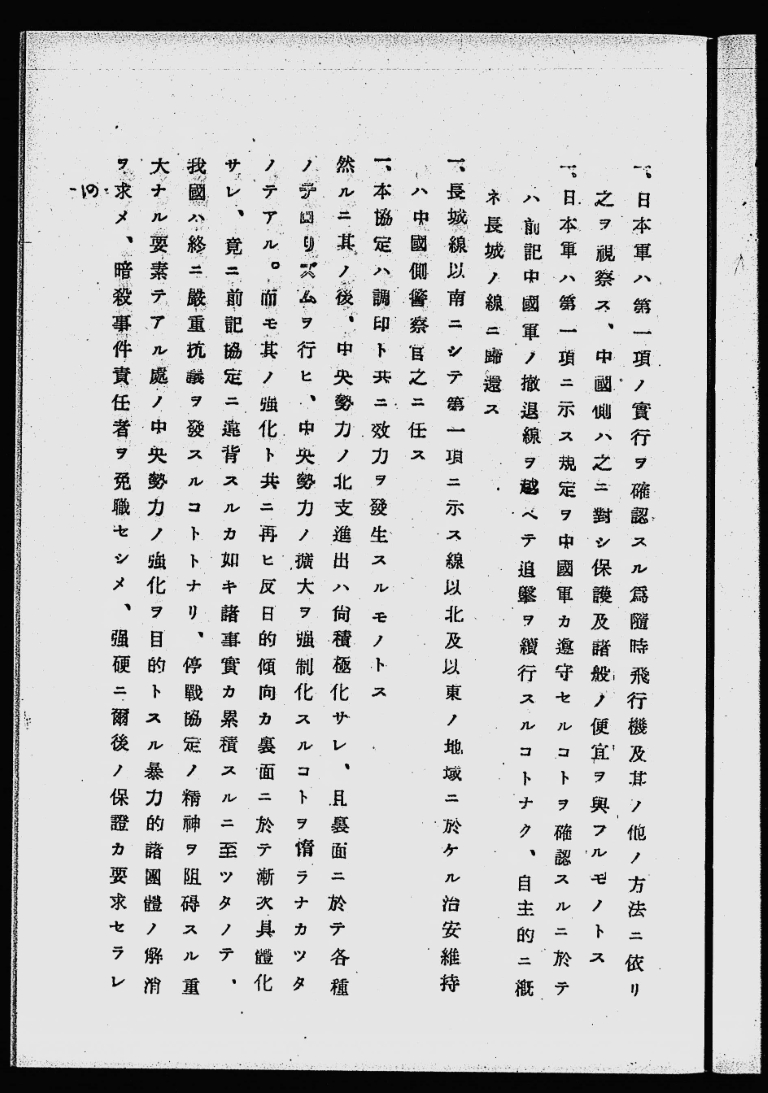 一、日本軍ハ第一項ノ實行ヲ確認スル爲隨時飛行機及其ノ他ノ方法ニ依リ
之ヲ視察ス、中國側ハ之ニ對シ保護及諸般ノ便宜ヲ與フルモノトス
一、日本軍ハ第一項ニ示ス規定ヲ中國軍カ遵守セルコトヲ確認スルニ於テ
ハ前記中國軍ノ撤退線ヲ越ヘテ追擊ヲ續行スルコトナク、自主的ニ概
ネ長城ノ線ニ歸還ス
一、長城線以南ニシテ第一項ニ示ス線以北及以東ノ地域ニ於ケル治安維持
ハ中國側警察官之ニ任ス
一、本協定ハ調印ト共ニ效力ヲ發生スルモノトス
然ルニ其ノ後、中央勢力ノ北支進出ハ尙積極化サレ、且裏面ニ於テ各種
ノテロリズムヲ行ヒ、中央勢力ノ擴大ヲ强制化スルコトヲ惰ラナカツタ
ノテアル。而モ其ノ强化ト共ニ再ヒ反日的傾向カ裏面ニ於テ漸次具體化
サレ、竟ニ前記協定ニ違背スルカ如キ諸事實カ累積スルニ至ツタノテ、
我國ハ終ニ嚴重抗議ヲ發スルコトトナリ、停戰協定ノ精神ヲ阻碍スル重
大ナル要素テアル處ノ中央勢力ノ强化ヲ目的トスル暴力的諸團體ノ解消
ヲ求メ、暗殺事件責任者ヲ免職セシメ、强硬ニ爾後ノ保證カ要求セラレ